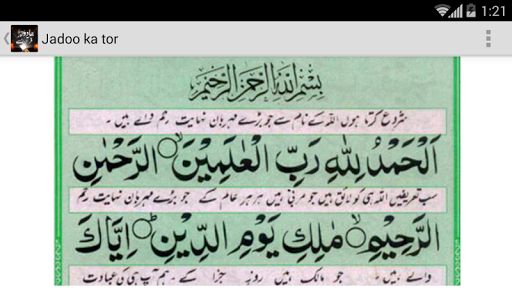 1:21
Jadoo ka tor
بِسْمِ اللّٰهِ الرَّحْمٰنِ الرَّحِيْمِ
شروع کرتا ہوں اللہ کے نام سے جو بڑے مہربان نہایت رحم والے ہیں۔
اَلْحَمْدُ لِلّٰهِ رَبِّ الْعٰلَمِيْنَ ۙ الرَّحْمٰنِ
سب تعریفیں اللہ ہی کو لائق ہیں جو مربی ہیں ہر ہر عالم کے جو بڑے مہربان نہایت رحم
الرَّحِيْمِ ۙ مٰلِكِ يَوْمِ الدِّيْنِ ؕ اِيَّاكَ
والے ہیں۔ جو مالک ہیں روز جزا کے۔ ہم آپ ہی کی عبادت